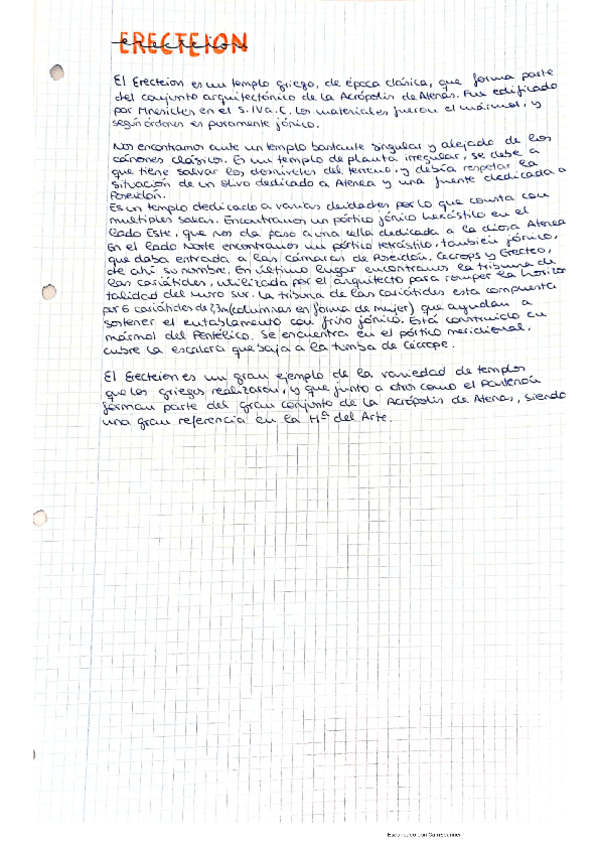 ERECTEION
El Erecteion es un templo griego, de época clásica, que forma parte
del conjunto arquitectónico de la Acrópolis de Atenas. Fue edificado
por Mnesicles en el S.IV a.C. Los materiales fueron el mármol, y
según órdenes es puramente jónico.
Nos encontramos ante un templo bastante singular y alejado de los
cánones clásicos. Es un templo de planta irregular, se debe a
que tiene salvar los desniveles del terreno, y debía respetar la
situación de un olivo dedicado a Atenea y una fuente dedicada a
Poseidón.
Es un templo dedicado a varias deidades por lo que consta con
multiples salas. Encontramos un pórtico jónico hexástilo en el
lado Este, que nos da paso a una cella dedicada a la diosa Atenea
En el lado Norte encontramos un pórtico tetrástilo, también jónico,
que daba entrada a las cámaras de Poseidón, Cecrops y Erecteo,
de ahí su nombre. En último lugar encontramos la tribuna de
las cariátides, utilizada por el arquitecto para romper la horizon
talidad del muro sur. La tribuna de las cariátides esta compuesta
por 6 cariátides de 2,3m (columnas en forma de mujer) que ayudan a
sostener el entablamento con friso jónico. Está construido en
mármol del Pentélico. Se encuentra en el pórtico meridional,
cubre la escalera que baja a la tumba de Cécrope.
El Erecteion es un gran ejemplo de la variedad de templos
que los griegos realizaron, y que junto a otros como el Partenón
forman parte del gran conjunto de la Acrópolis de Atenas, siendo
una gran referencia en la Hª del Arte.
Escaneado con CamScanner